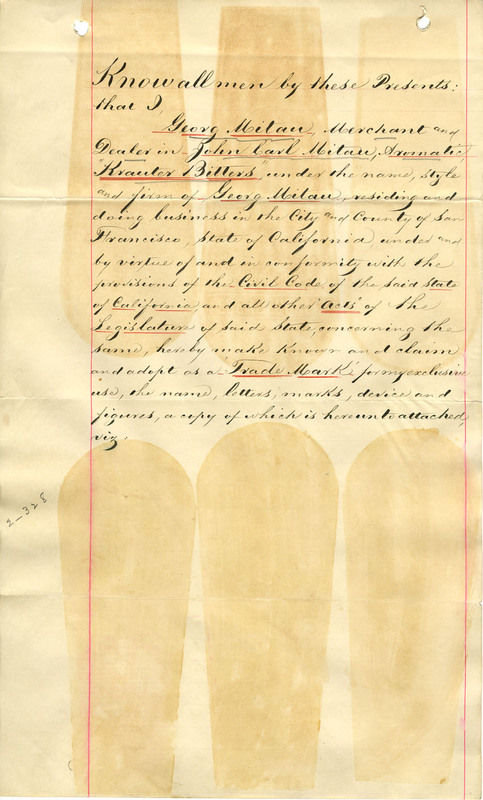 Know all men by these Presents:
that I,
Georg Mitau, Merchant and
Dealer in John Carl Mitau, Aromatic,
"Krauter Bitters" under the name, style
and firm of Georg Mitau, residing and
doing business in the City and County of San
Francisco, State of California, under and
by virtue of and in conformity with the
provisions of the Civil Code of the said State
of California and all other "Acts" of the
Legislature of said State, concerning the
same, hereby make known and claim
and adopt as a "Trade Mark" for my exclusive
use, the name, letters, marks, device and
figures, a copy of which is hereunto attached,
viz.
2-328